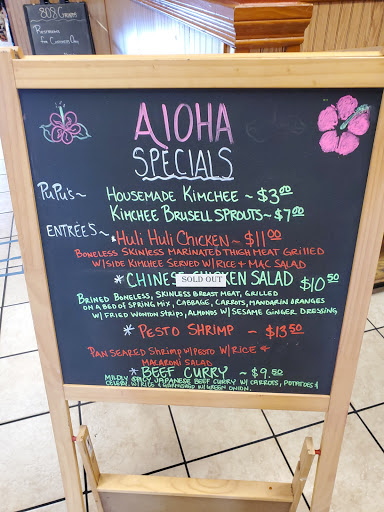 808 Grinds
Restrooms
for Customers Only
ALOHA
SPECIALS
PUPU'S~ HOUSEMADE KIMCHEE ~ $3.00
KIMCHEE BRUSELL SPROUTS~ $7.00
ENTRÉES~ *HULI HULI CHICKEN ~ $11.00
BONELESS SKINLESS MARINATED THIGH MEAT GRILLED
W/SIDE KIMCHEE SERVED W/RICE + MAC SALAD
*CHINESE CHICKEN SALAD $10.50
SOLD OUT
BRINED BONELESS, SKINLESS BREAST MEAT, GRILLED
ON A BED OF SPRING MIX, CABBAGE, CARROTS, MANDARIN ORANGES
W/ FRIED WONTON STRIPS, ALMONDS W/ SESAME GINGER DRESSING
*PESTO SHRIMP ~ $13.50
PAN SEARED SHRIMP W/PESTO W/RICE &
MACARONI SALAD
*BEEF CURRY ~ $9.50
MILDLY SPICY JAPANESE BEEF CURRY W/ CARROTS, POTATOES &
CELERY, W/ RICE & GARNISHED W/ GREEN ONION.